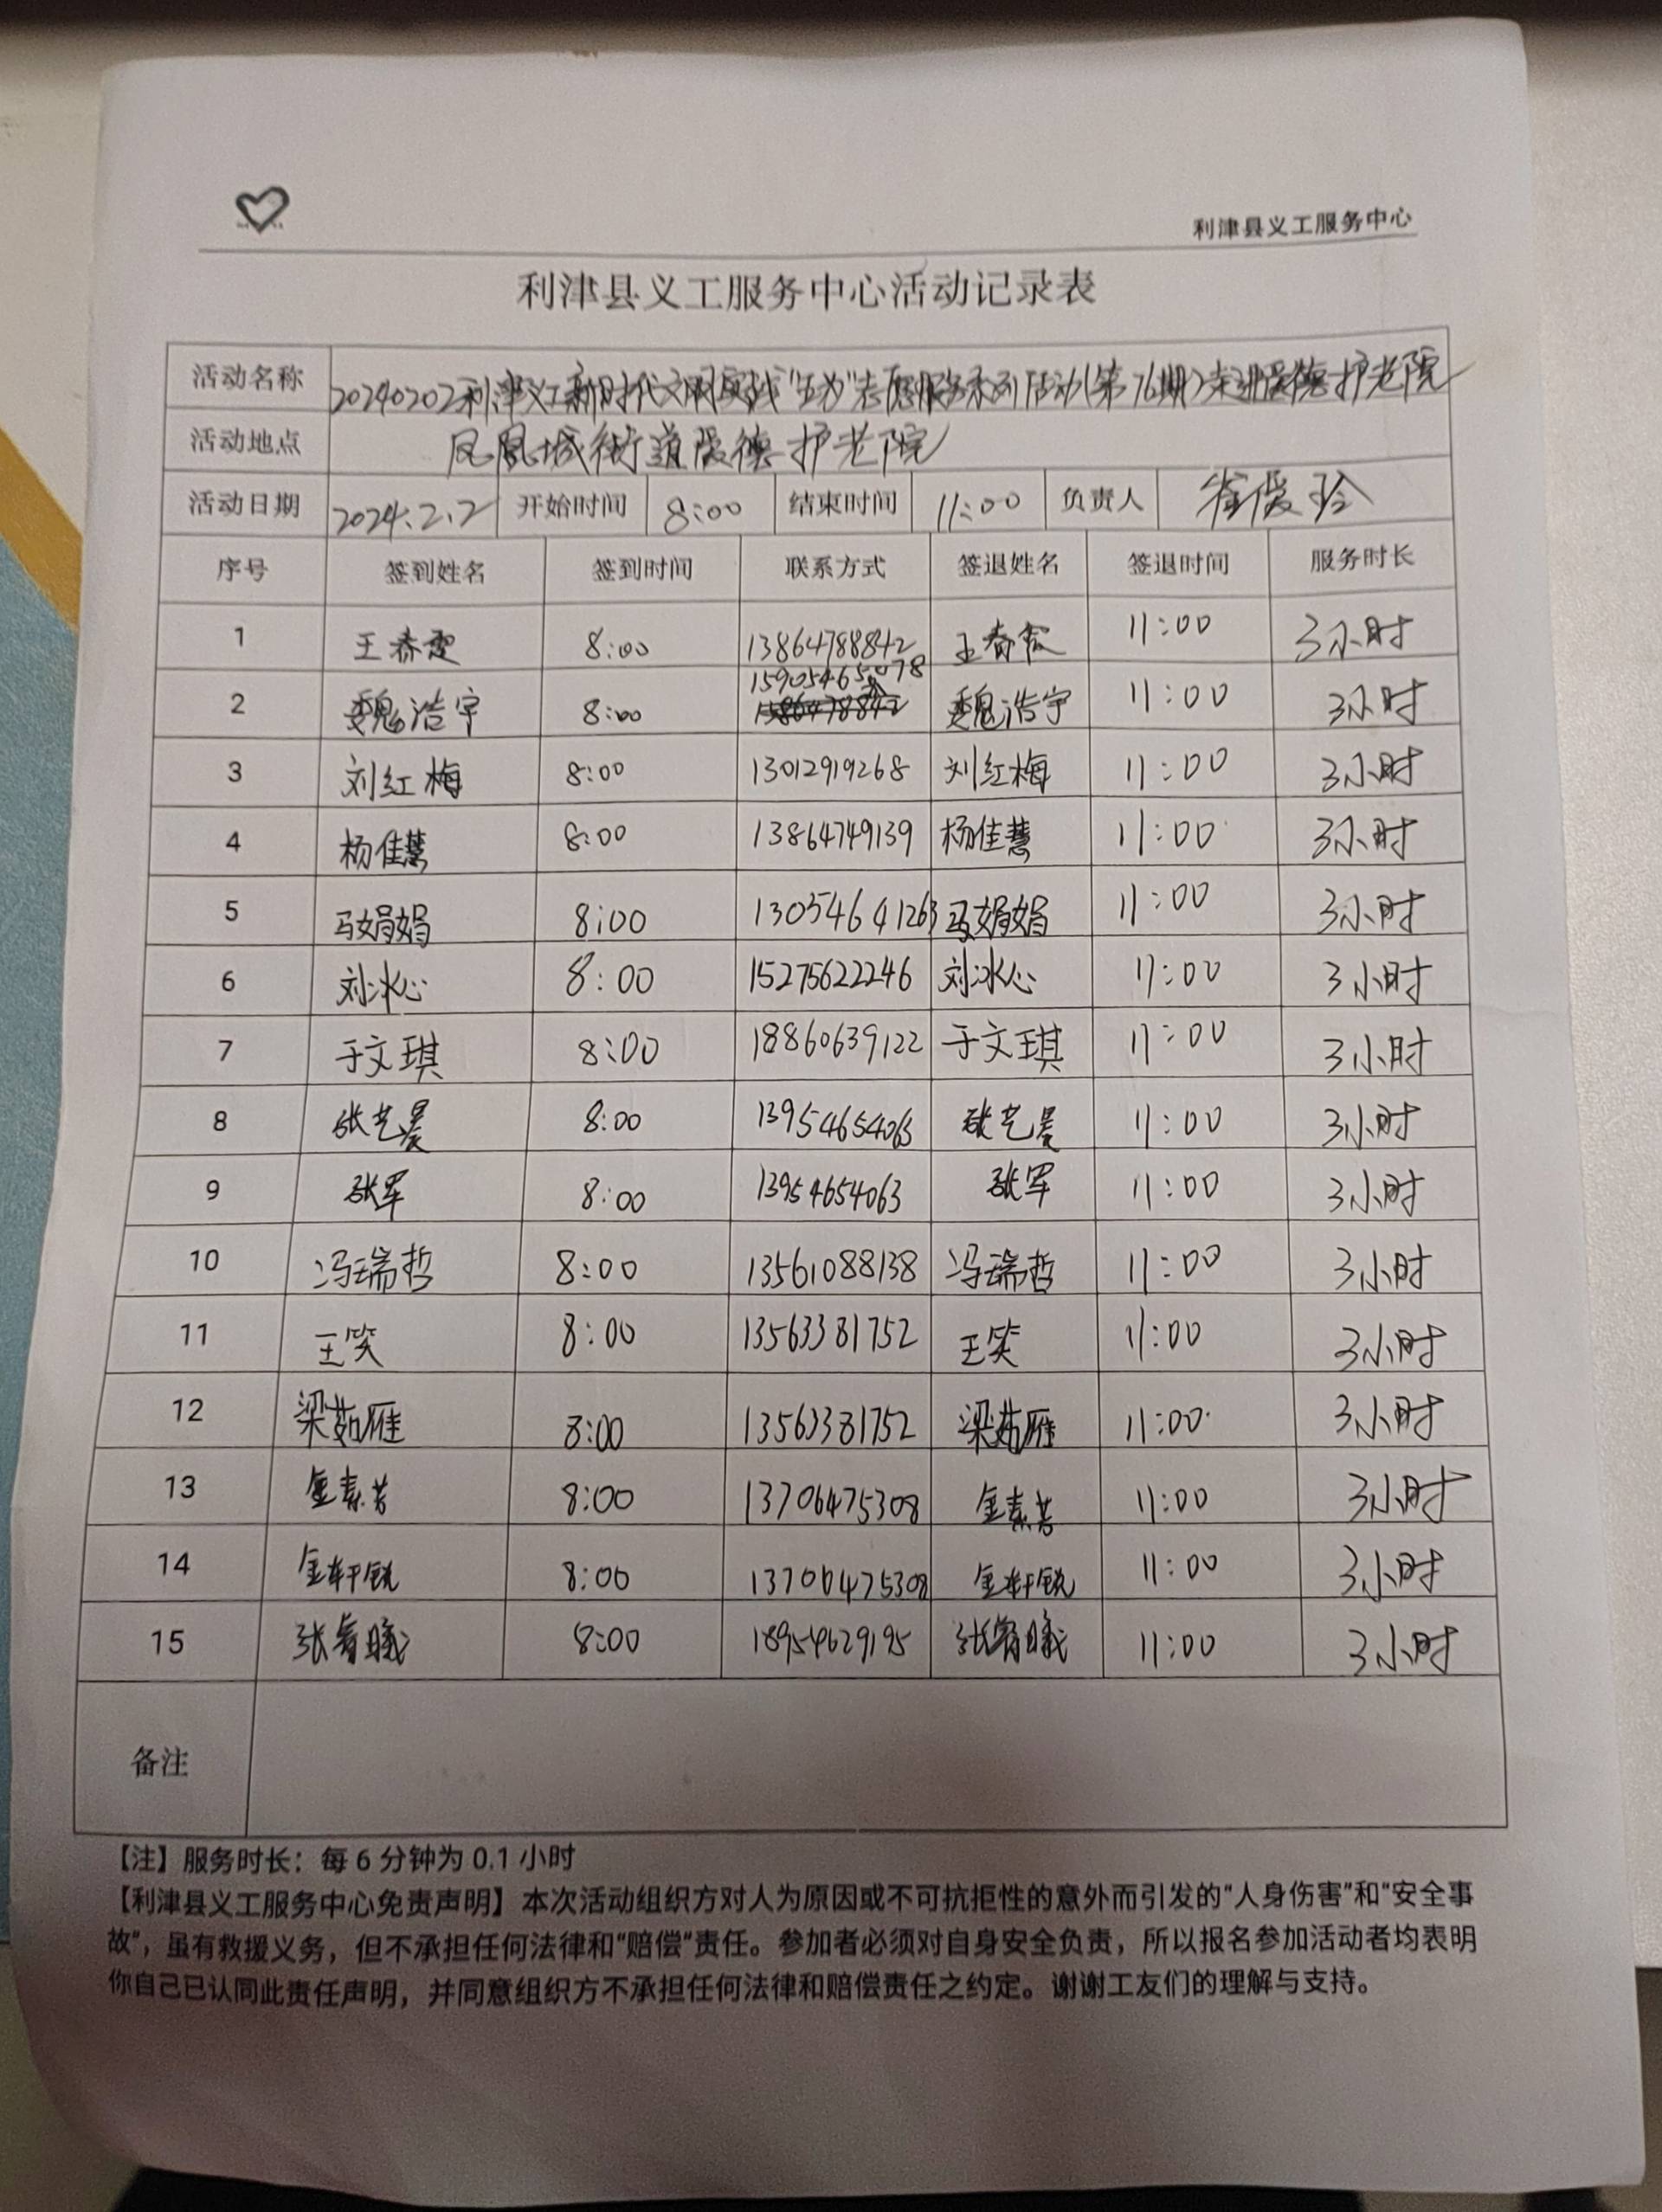 利津县义工服务中心
利津县义工服务中心活动记录表
活动名称 20240202利津义工新时代文明实践"五为"志愿服务系列活动(第76期)走进爱德护老院
活动地点 凤凰城街道爱德护老院
活动日期 2024.2.2 开始时间 8:00 结束时间 11:00 负责人 崔爱玲
序号 签到姓名 签到时间 联系方式 签退姓名 签退时间 服务时长
1 王春霞 8:00 13864788842 王春霞 11:00 3小时
2 魏浩宇 8:00 15905465078 魏浩宇 11:00 3小时
3 刘红梅 8:00 13012919268 刘红梅 11:00 3小时
4 杨佳慧 8:00 13864749139 杨佳慧 11:00 3小时
5 马娟娟 8:00 13054641263 马娟娟 11:00 3小时
6 刘冰心 8:00 15275622246 刘冰心 11:00 3小时
7 于文琪 8:00 18860639122 于文琪 11:00 3小时
8 张艺晨 8:00 13954654063 张艺晨 11:00 3小时
9 张军 8:00 13954654063 张军 11:00 3小时
10 冯瑞哲 8:00 13561088138 冯瑞哲 11:00 3小时
11 王笑 8:00 13563381752 王笑 11:00 3小时
12 梁茹雁 8:00 13563381752 梁茹雁 11:00 3小时
13 金素芳 8:00 13706475308 金素芳 11:00 3小时
14 金轩锐 8:00 13706475308 金轩锐 11:00 3小时
15 张睿曦 8:00 18954629195 张睿曦 11:00 3小时
备注
【注】服务时长：每 6 分钟为 0.1 小时
【利津县义工服务中心免责声明】本次活动组织方对人为原因或不可抗拒性的意外而引发的“人身伤害”和“安全事
故”，虽有救援义务，但不承担任何法律和“赔偿”责任。参加者必须对自身安全负责，所以报名参加活动者均表明
你自己已认同此责任声明，并同意组织方不承担任何法律和赔偿责任之约定。谢谢工友们的理解与支持。